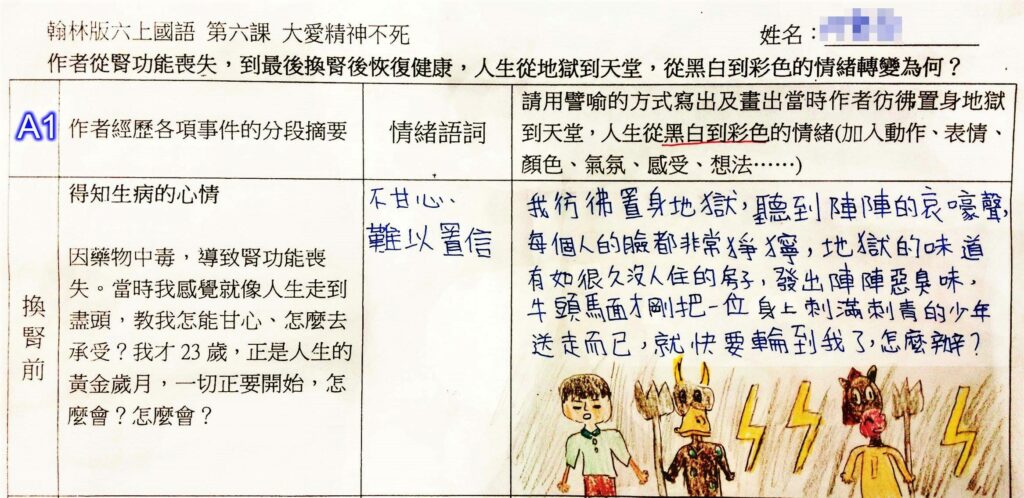 翰林版六上國語 第六課 大愛精神不死
姓名：
作者從腎功能喪失，到最後換腎後恢復健康，人生從地獄到天堂，從黑白到彩色的情緒轉變為何？
A1
作者經歷各項事件的分段摘要
情緒語詞
請用譬喻的方式寫出及畫出當時作者彷彿置身地獄
到天堂，人生從黑白到彩色的情緒(加入動作、表情、
顏色、氣氛、感受、想法……)
換腎前
得知生病的心情
因藥物中毒，導致腎功能喪
失。當時我感覺就像人生走到
盡頭，教我怎能甘心、怎麼去
承受？我才 23 歲，正是人生的
黃金歲月，一切正要開始，怎
麼會？怎麼會？
不甘心、
難以置信
我彷彿置身地獄，聽到陣陣的哀嚎聲，
每個人的臉都非常猙獰，地獄的味道
有如很久沒人住的房子，發出陣陣惡臭味，
牛頭馬面才剛把一位身上刺滿刺青的少年
送走而已，就快要輪到我了，怎麼辦？